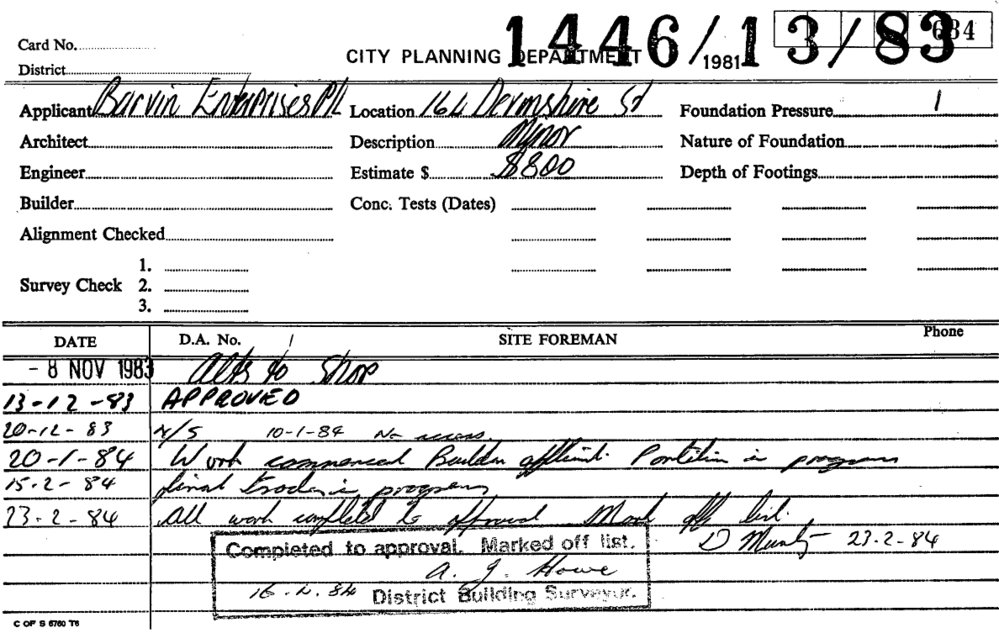 1446/13/83
Card No. 684
CITY PLANNING DEPARTMENT /1981
District
Applicant Barvin Enterprises P/L Location 164 Devonshire St Foundation Pressure 1
Architect Description Minor Nature of Foundation
Engineer Estimate $ $800 Depth of Footings
Builder Conc. Tests (Dates)
Alignment Checked
1.
Survey Check 2.
3.
DATE D.A. No. / SITE FOREMAN Phone
- 8 NOV 1983 Alts to Shop
13-12-83 APPROVED
20-12-83 N/S 10-1-84 No access
20-1-84 Work commenced Builder Partition in progress
15-2-84 final trades in progress
23-2-84 All work completed to approval Mark off list.
D 23-2-84
Completed to approval. Marked off list.
A. J. Howe
16.4.84 District Building Surveyor.
C OF S 6760 T6